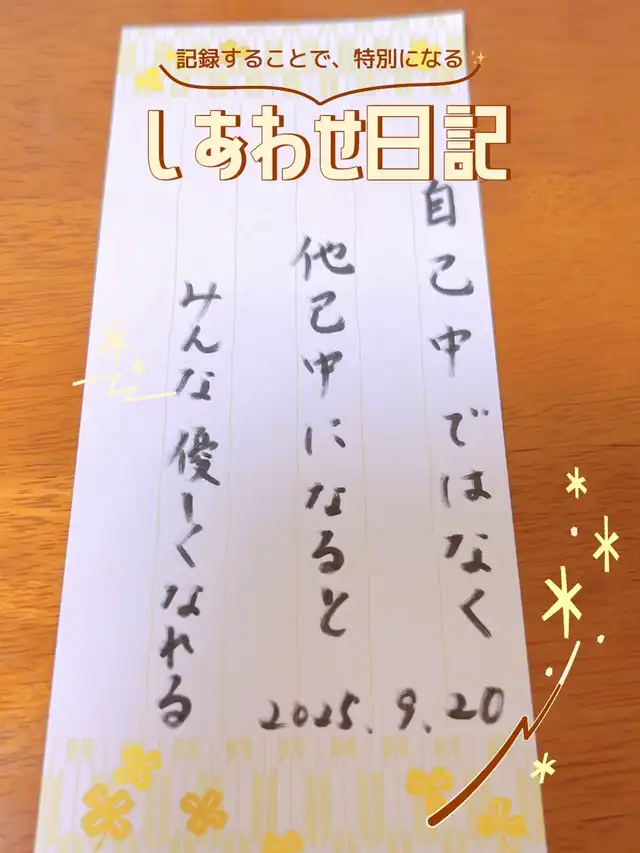 記録することで、特別になる
しあわせ日記
自己中ではなく
他己中になると
みんな優しくなれる
2025.9.20